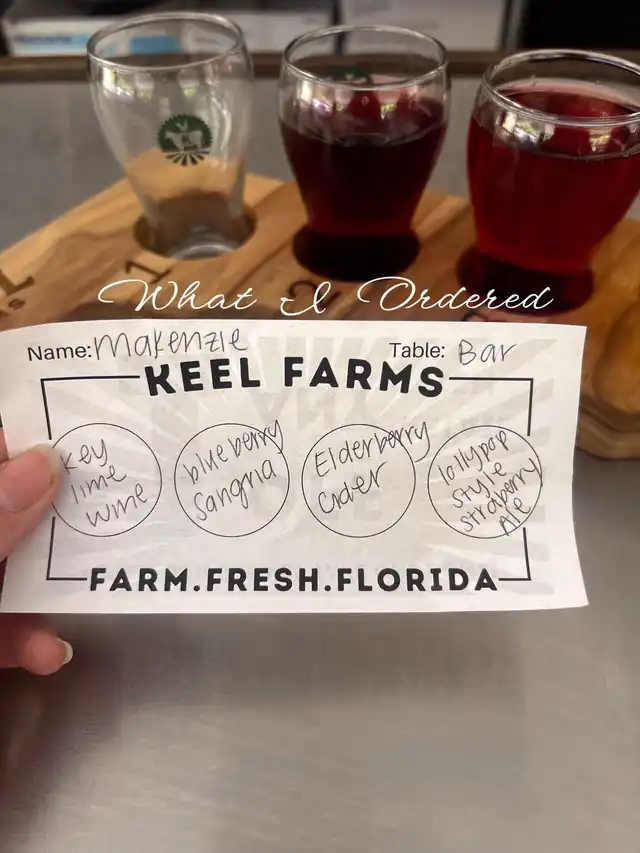 1
2
What I Ordered
Name: Makenzie Table: Bar
KEEL FARMS
Key
lime
wine
blueberry
Sangria
Elderberry
Cider
lollypop
style
straberry
Ale
FARM.FRESH.FLORIDA